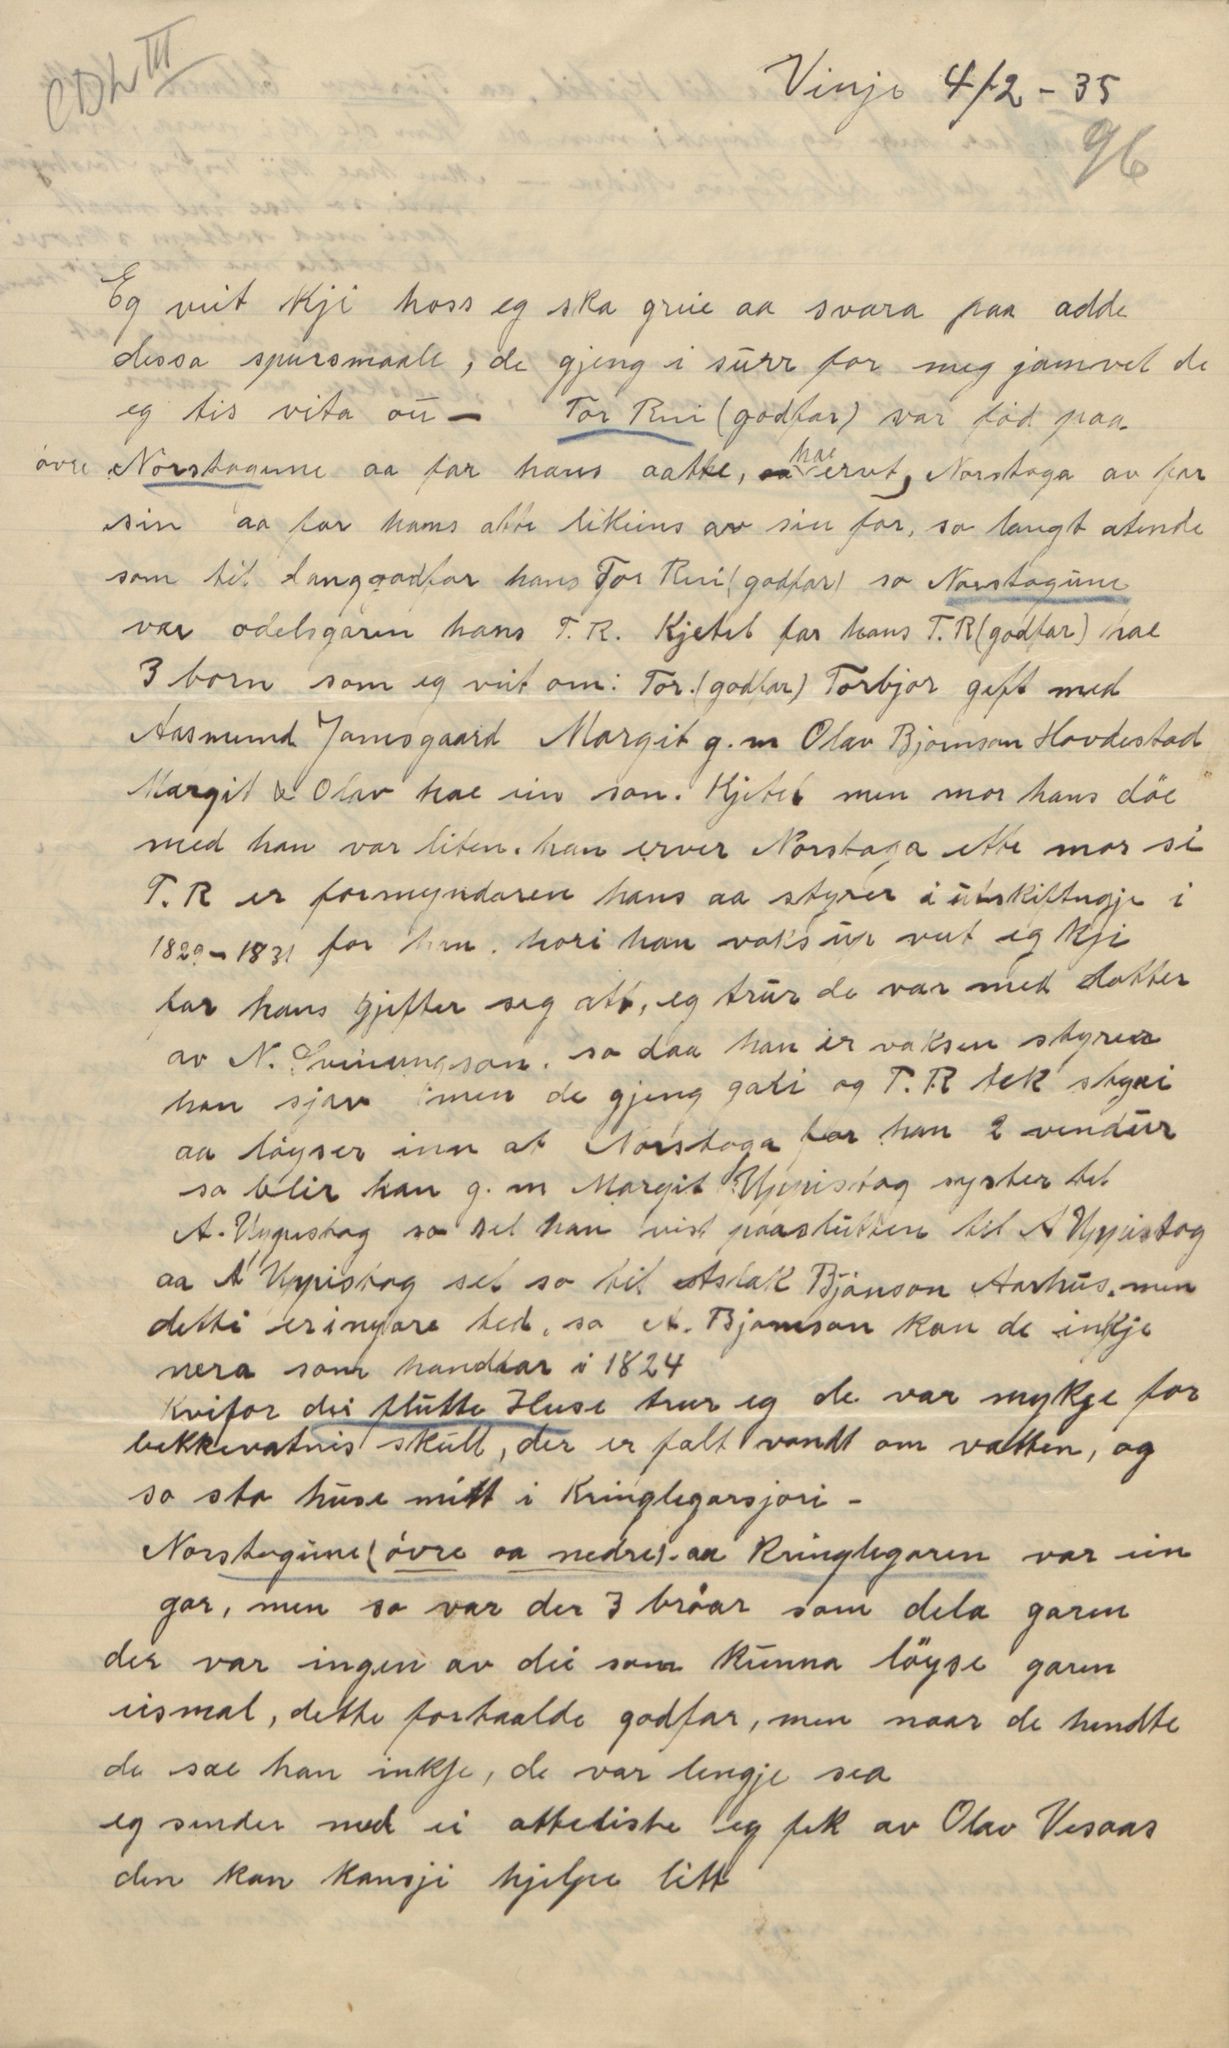 CDL III
Vinje 4/2 - 35
96
Eg veit kji hoss eg ska greie aa svara paa adde
dessa spursmaale, de gjeng i surr for meg jamvel de
eg tis vita ou — Tor Rui (godfar) var föd paa
övre Norstogune aa far hans aatte, hae ervt, Norstoga av far
sin aa far hans atte likeins av sin far, so langt atende
som til langgodfar hans Tor Rui (godfar) so Norstogune
var odelsgaren hans T. R. Kjetel far hans T.R (godfar) hae
3 born som eg veit om: Tor. (godfar) Torbjor geft med
Aasmund Jamsgaard Margit g. m Olav Bjornson Hovdestad
Margit & Olav hae ein son. Kjetel men mor hans döe
med han var liten. han erver Norstoga ette mor si
T. R er formyndaren hans aa styrer i utskiftngje i
1829 - 1831 for han. hori han voks up veit eg kji
far hans gjifter seg att, eg trur de var med dotter
av N. Sveinungson. so daa han er vaksen styrer
han sjav men de gjeng gali og T. R tek styri
aa löyser inn at Norstoga for han 2 vendur
so blir han g. m Margit Uppistog syster til
A. Uppistog so sel han vist paaslutten til A Uppistog
aa A Uppistog sel so til Aslak Bjönson Aarhus. men
detti er ingare tid. so A. Bjornson kan de inkje
vera som handlar i 1824
Kvifor dei flutte Huse trur eg de var mykje for
bekkevatnis skull, der er falt vondt om vatten, og
so sto huse mitt i Kringlegarsjori -
Norstogune (övre aa nedre). aa Kringlegaren var ein
gar, men so var der 3 bröar som dela garen
der var ingen av dei som kunna löyse garen
eismal, dette fortaalde godfar, men naar de hendte
de sae han inkje, de var lengje sea
eg sender med ei atteliste eg fek av Olav Vesaas
den kan kansji hjelpe litt